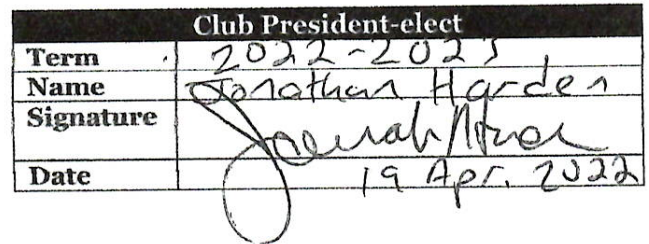 Club President-elect
Term 2022-2023
Name Jonathan Harden
Signature
Date 19 Apr. 2022